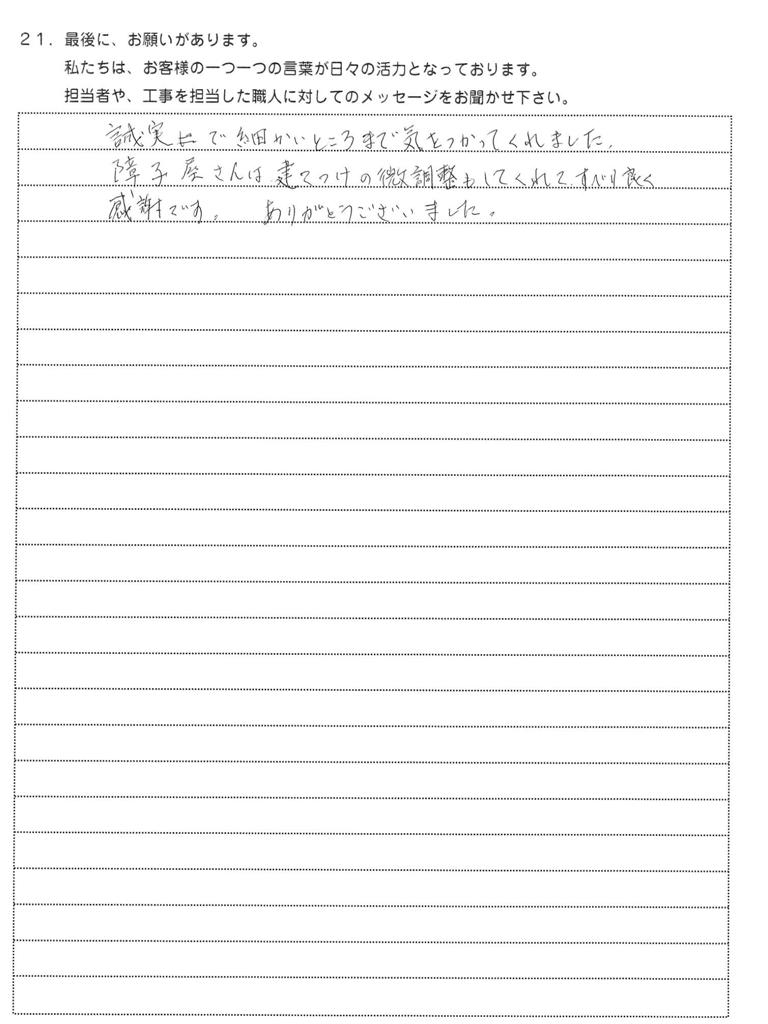 21．最後に、お願いがあります。
私たちは、お客様の一つ一つの言葉が日々の活力となっております。
担当者や、工事を担当した職人に対してのメッセージをお聞かせ下さい。
誠実で細かいところまで気をつかってくれました。
障子屋さんは建てつけの微調整もしてくれて、すべり良く
感謝です。　ありがとうございました。